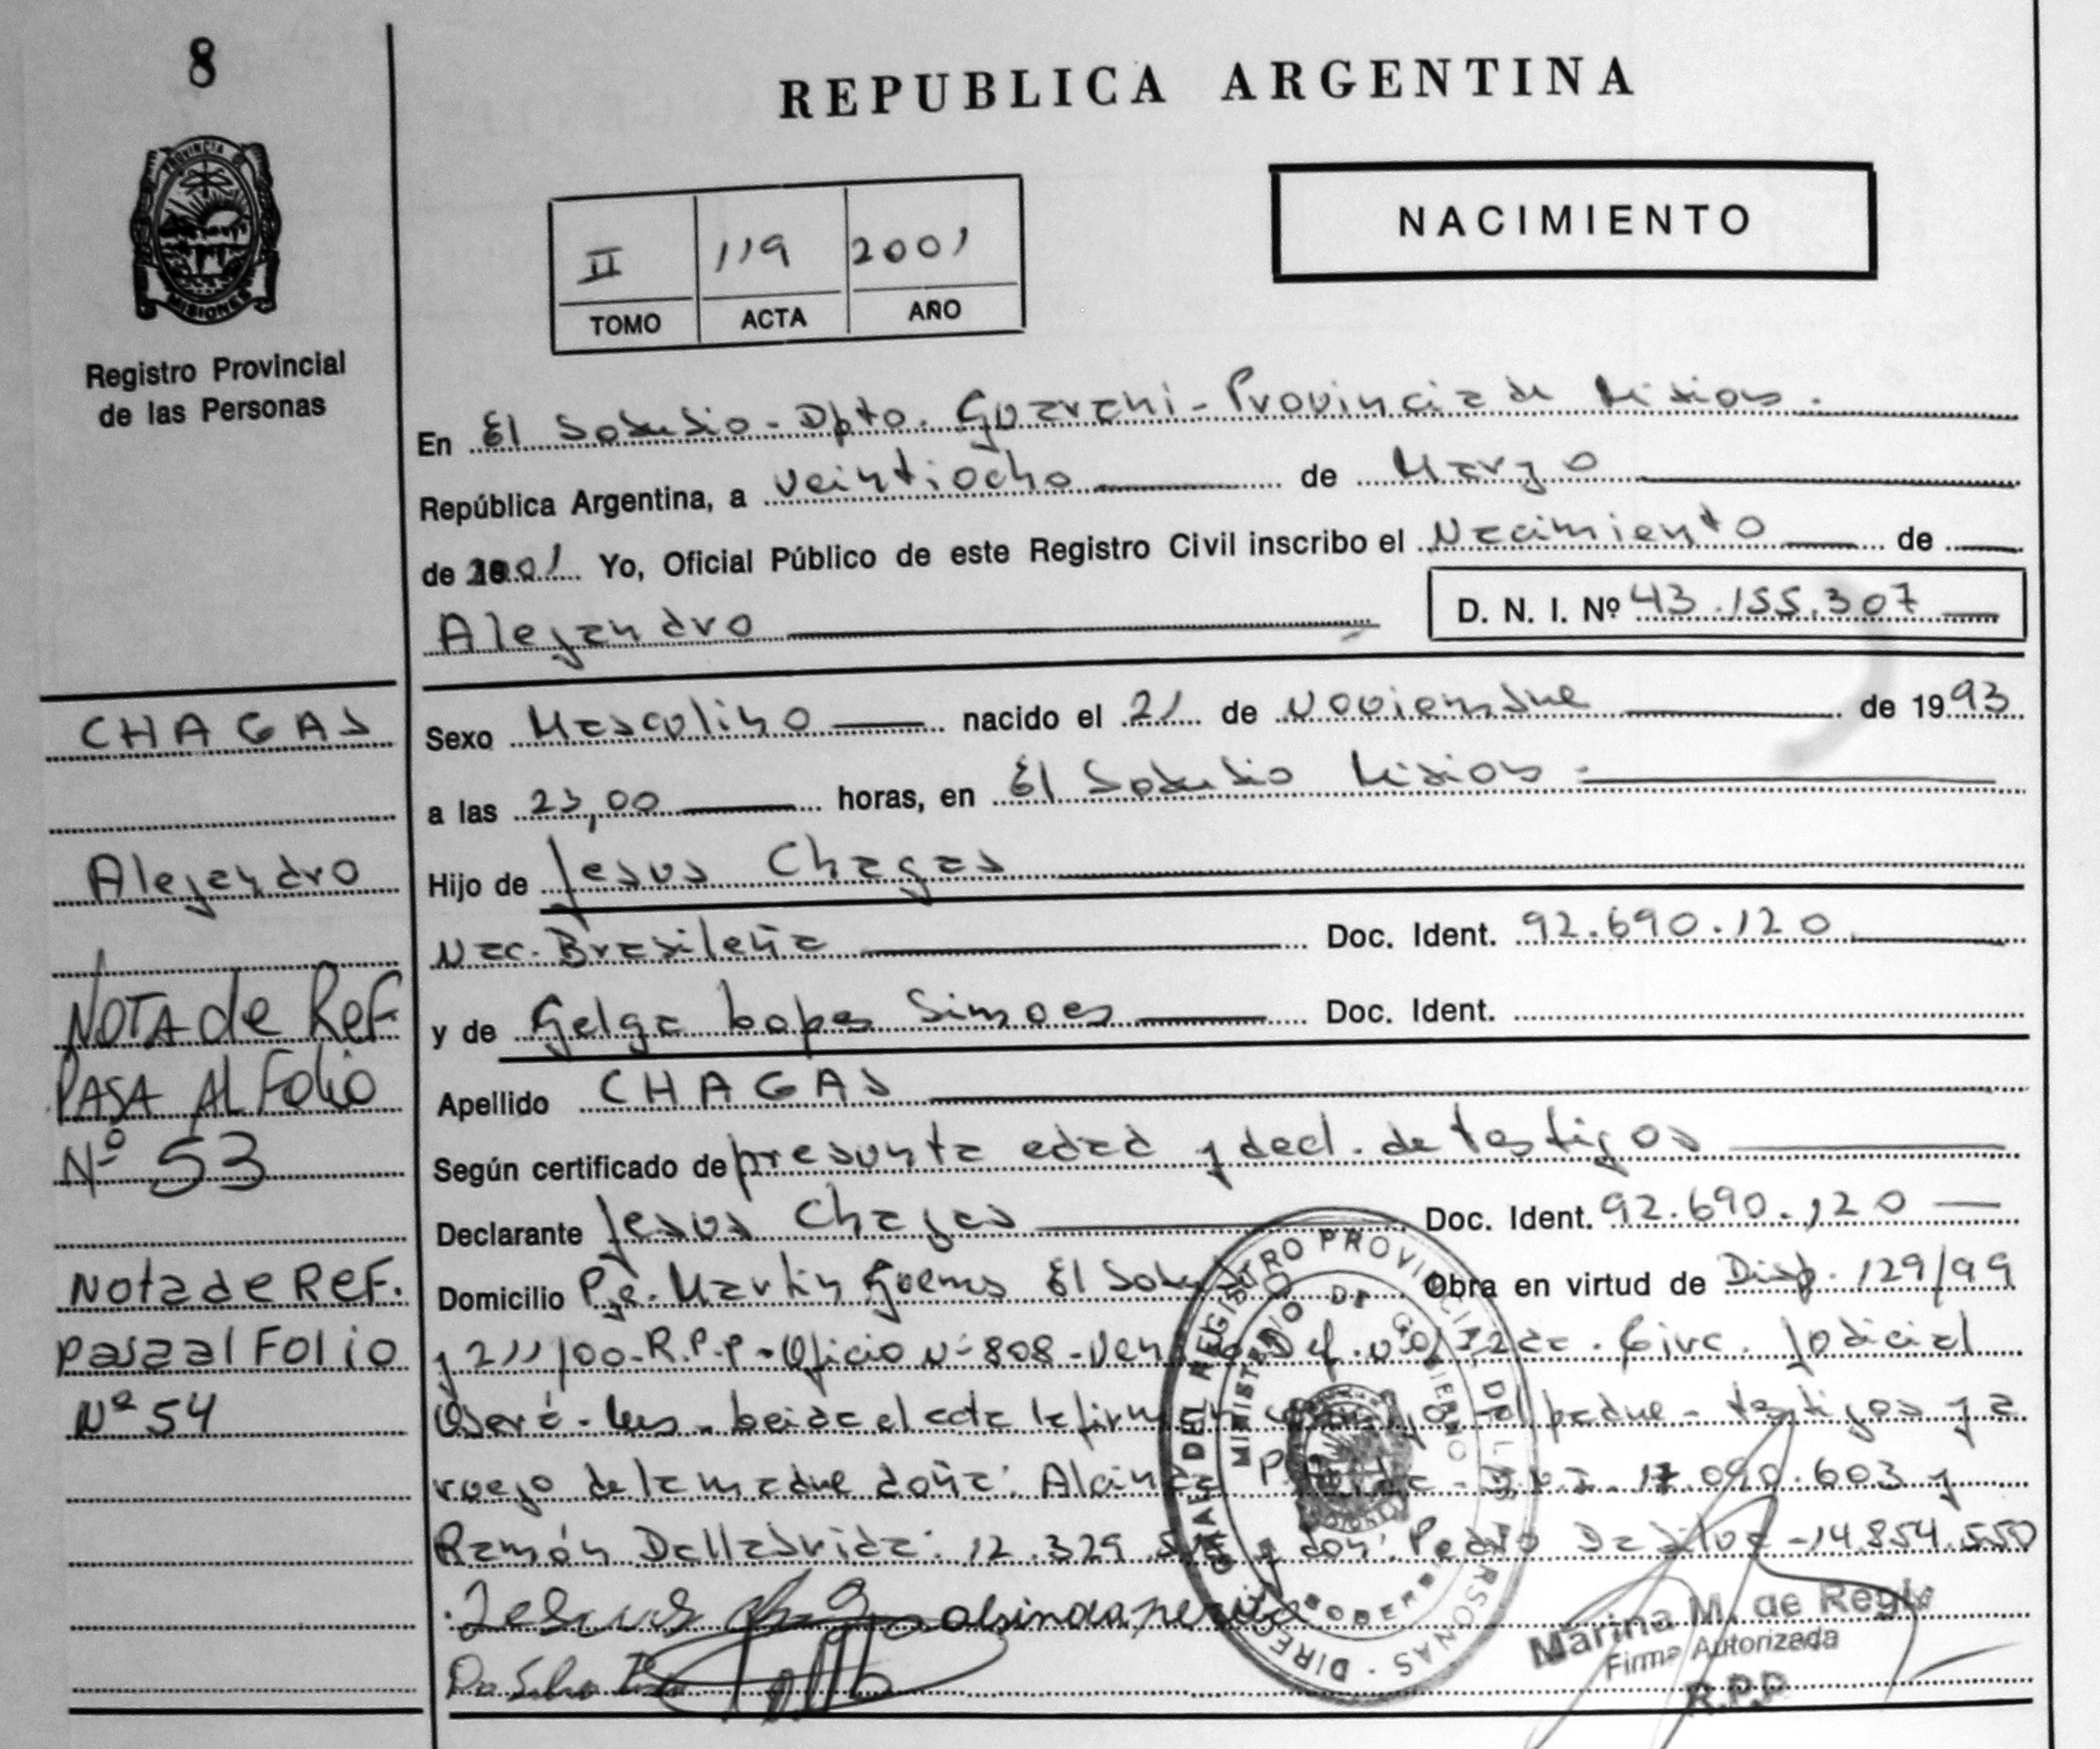 8
REPUBLICA ARGENTINA
PROVINCIA DE
MISIONES
Registro Provincial
de las Personas
NACIMIENTO
II 119 2001
TOMO ACTA AÑO
En El Soberbio - Dpto. Guarani - Provincia de Misiones.
República Argentina, a veintiocho de Marzo
de 2001 Yo, Oficial Público de este Registro Civil inscribo el Nacimiento de
Alejandro D. N. I. Nº 43.155.307
CHAGAS
Alejandro
NOTA de ReF.
PASA AL Folio
Nº 53
Nota de ReF.
pasa al Folio
Nº 54
Sexo Masculino nacido el 21 de Noviembre de 1993
a las 23,00 horas, en El Soberbio Misiones
Hijo de Jesus Chagas
Nac. Brasileña Doc. Ident. 92.690.120
y de Gelga Lopes Simoes Doc. Ident.
Apellido CHAGAS
Según certificado de presunta edad y decl. de testigos
Declarante Jesus Chagas Doc. Ident. 92.690.120
Domicilio Pje. Martin Guemes El Obra en virtud de Disp. 129/99
y 211/00 - R.P.P - Oficio Nº 808 - Circ. Judicial
Oberá - Mnes - Leida el acta la firman padre - testigos y a
ruego de la madre doña: 17.090.603 y
Ramón Dallabrida: 12.329 y don: Pedro Da Silva - 14.854.550
Jesus Chagas alsinda
Da Silva
DIRE GRAL DEL REGISTRO PROVINCIAL DE LAS PERSONAS
MINISTERIO DE GOBIERNO
Marina M. de Regly
Firma Autorizada
R.P.P